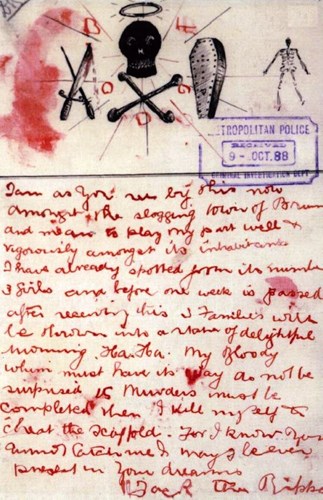 ETROPOLITAN POLICE
RECEIVED
9 - OCT. 88
CRIMINAL INVESTIGATION DEPT
I am as you see by this now
amongst the slogging town of Brum
and mean to play my part well &
vigorously amongst its inhabitants
I have already spotted from its number
3 girls and before one week is passed
after receiving this 3 Families will
be thrown into a state of delightful
mourning. Ha. Ha. My Bloody
whim must have its way do not be
surprised 15 Murders must be
completed then I kill myself to
cheat the scaffold. For I know you
cannot catch me & I may be ever
present in your dreams
Jack the Ripper